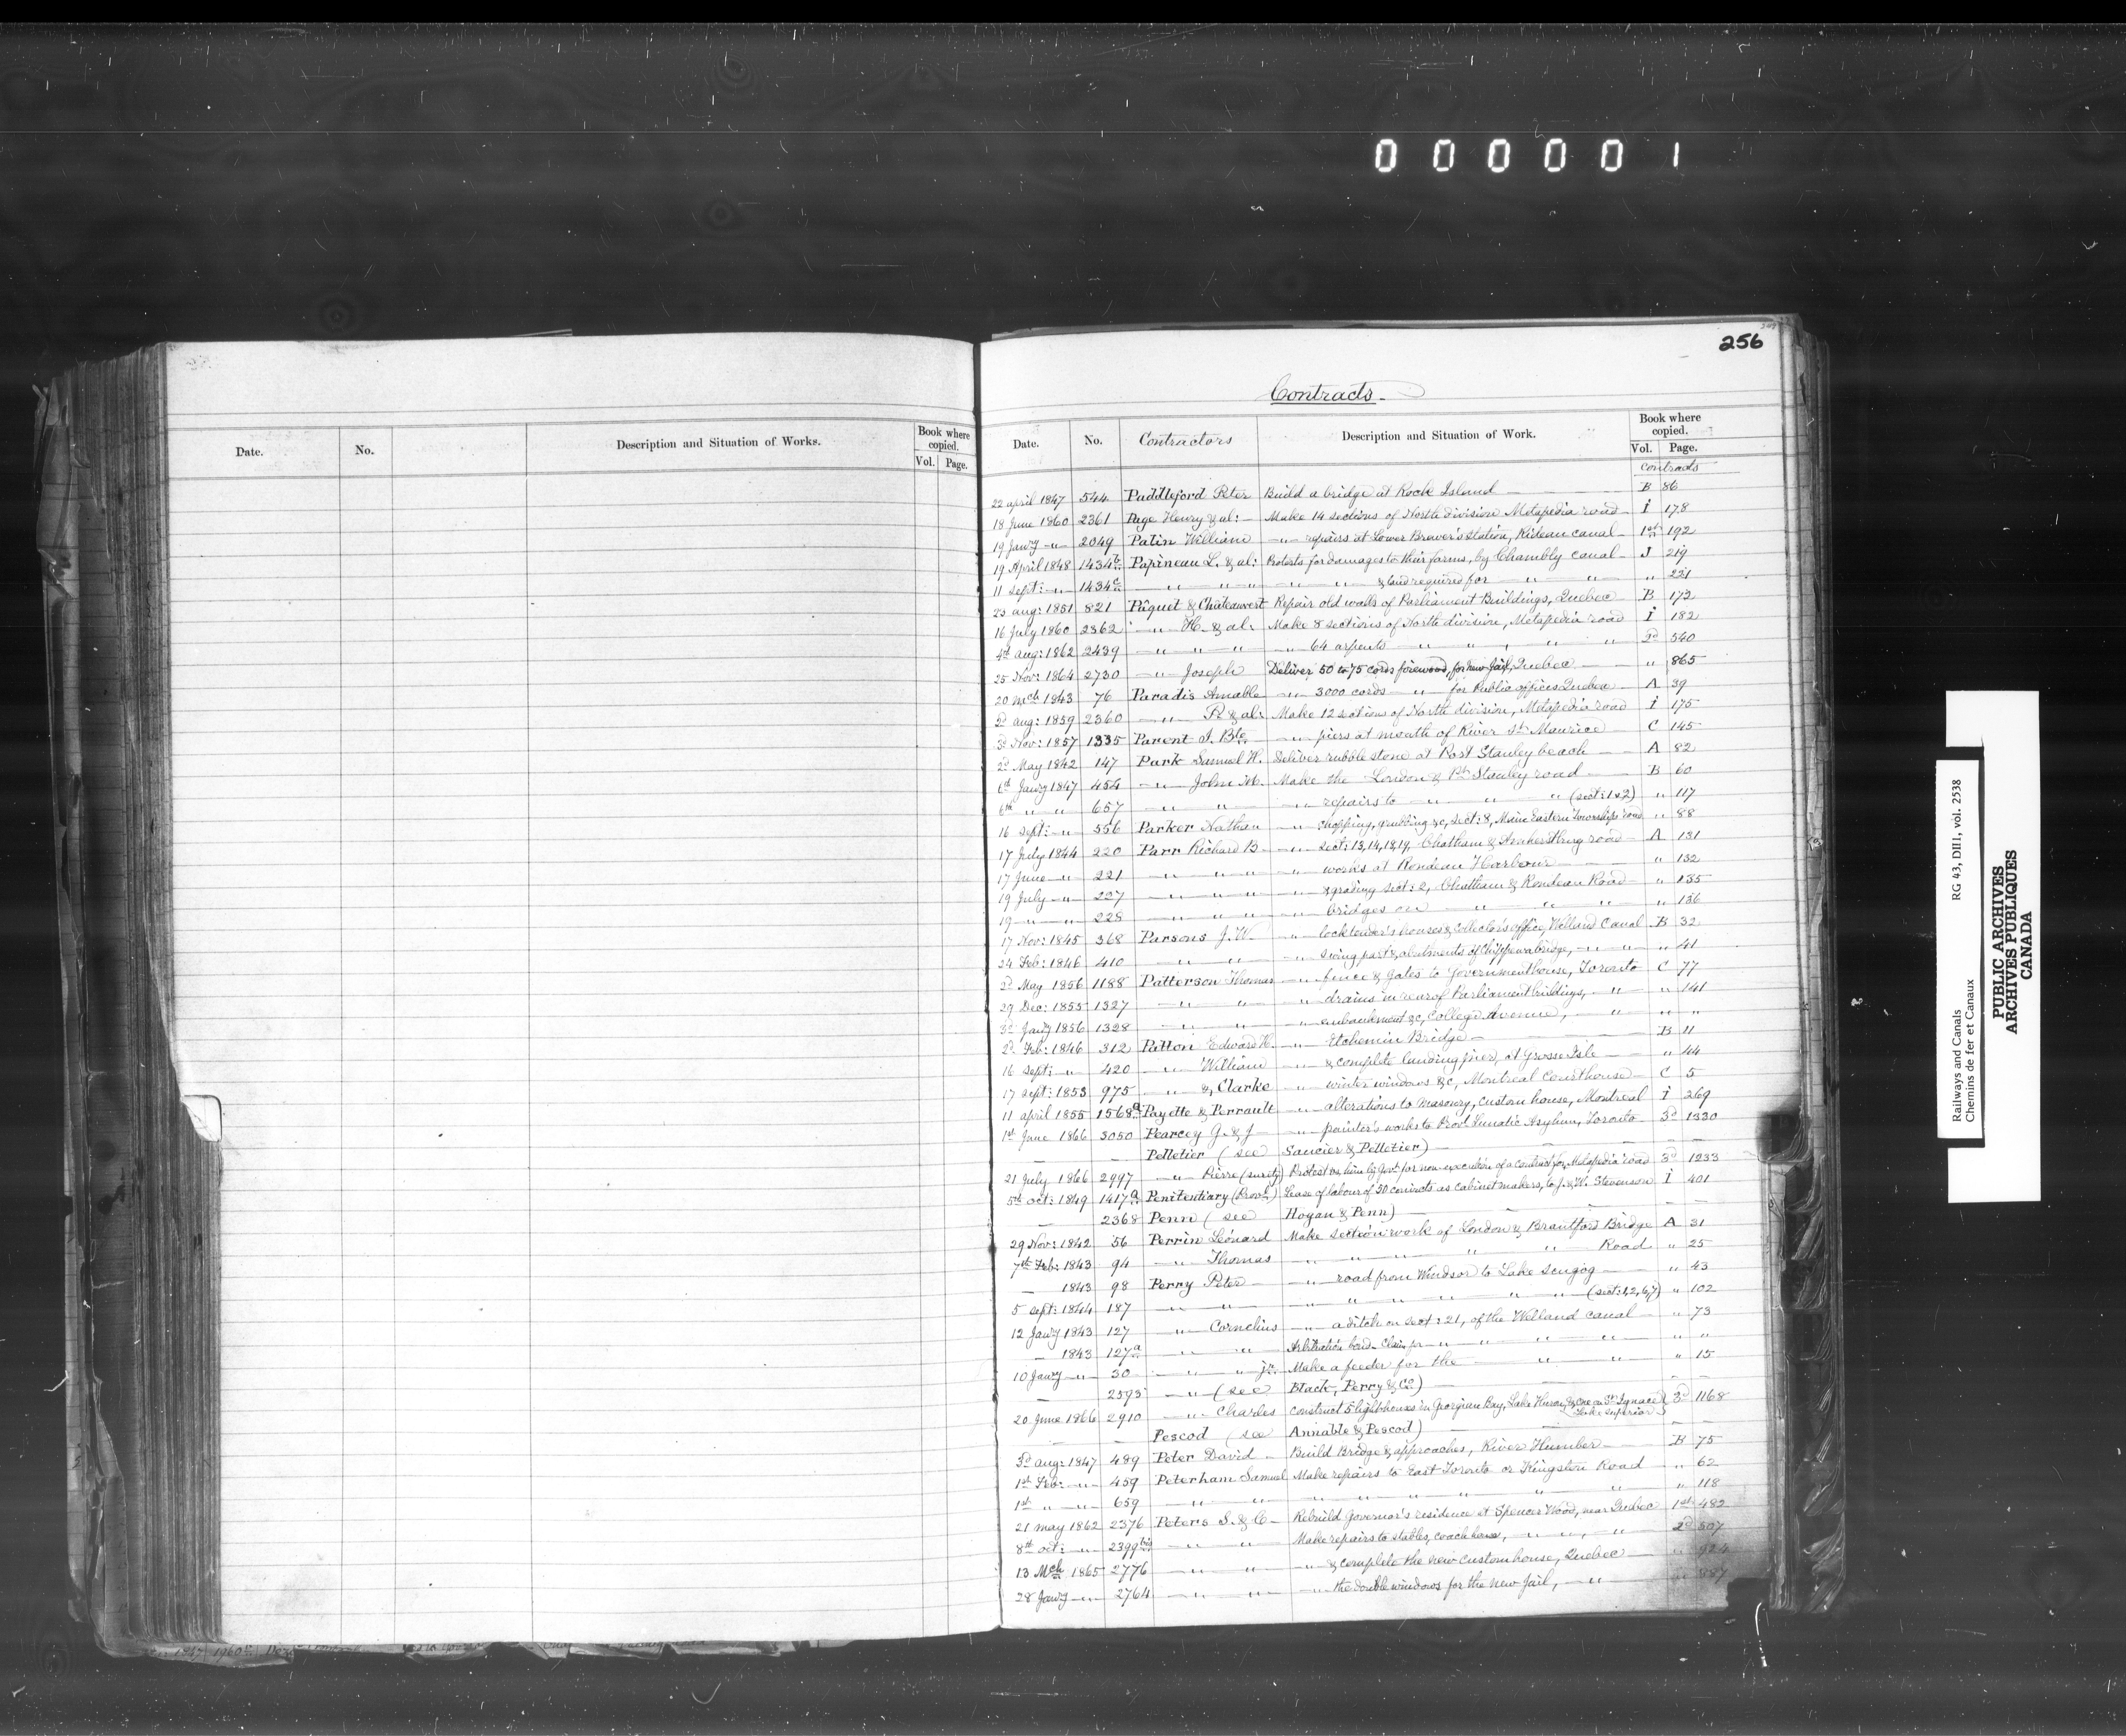 000001
256
Contracts.
Date. No. Description and Situation of Works. Book where copied. Vol. Page.
Date. No. Contractors Description and Situation of Work. Book where copied. Vol. Page.
Contracts
22 april 1847 544 Paddleford Peter Build a bridge at Rock Island — B 86
18 June 1860 2361 Page Henry & al: — Make 14 sections of North division Metapedia road — I 178
19 Jawy —„— 2049 Patin William —„— repairs at Lower Brewer's Station, Rideau canal — 1st 192
19 April 1848 1434 b Papineau L. & al: Protests for damages to their farms, by Chambly canal — J 219
11 Sept: —„— 1434 c —„— „ „ —„— „ & land required for —„— „ „ 221
23 aug: 1851 821 Pâquet & Chateauvert Repair old walls of Parliament Buildings, Quebec — B 173
16 July 1860 2362 —„— H. & al: Make 8 sections of North division, Metapedia road I 182
4th aug: 1862 2439 —„— „ „ —„— 64 arpents —„— „ „ „ 2d 540
25 Nov: 1864 2730 —„— Joseph Deliver 50 to 75 cords firewood, for new Jail, Quebec — „ 865
20 Mch 1843 76 Paradis Amable —„— 3000 cords —„— for Public offices Quebec — A 39
2d aug: 1859 2360 —„— P. & al: Make 12 sections of North division, Metapedia road I 175
3d Nov: 1857 1335 Parent J. Bte —„— piers at mouth of River St Maurice — C 145
2d May 1842 147 Park Samuel H. Deliver rubble stone at Port Stanley beach — A 82
6th Jawy 1847 454 —„— John M. Make the London & Pt Stanley road — B 60
6th „ „ 657 —„— „ —„— repairs to —„— „ „ (sect: 1 & 2) „ 117
16 Sept: —„— 556 Parker Nathan —„— chopping, grubbing &c, sect: 8, Main Eastern Townships road „ 88
17 July 1844 220 Parr Richard B —„— sect: 13, 14, 18, 19, Chatham & Amherstburg road — A 131
17 June —„— 221 —„— „ „ —„— works at Rondeau Harbour — „ 132
19 July —„— 227 —„— „ „ —„— & grading sect: 2, Chatham & Rondeau Road — „ 135
19 —„— „ 228 —„— „ „ —„— bridges on —„— „ „ „ 136
17 Nov: 1845 368 Parsons J. W. —„— locktender's houses & collector's office, Welland Canal B 32
24 Feb: 1846 410 —„— „ —„— swing part & abutments of Chippewa bridge, —„— „ „ 41
2d May 1856 1188 Patterson Thomas —„— fence & gates to Government house, Toronto — C 77
29 Dec: 1855 1327 —„— „ —„— drains in rear of Parliament buildings, —„— „ 141
3d Jawy 1856 1328 —„— „ —„— embankment &c, College Avenue, —„— „ „
2d Feb: 1846 312 Patton Edward H. —„— Etchemin Bridge — B 11
16 Sept: —„— 420 —„— William —„— & complete landing pier, at Grosse Isle — „ 44
17 Sept: 1853 975 —„— & Clarke —„— winter windows &c, Montreal Courthouse — C 5
11 april 1855 1568 a Payette & Perrault —„— alterations to Masonry, custom house, Montreal I 269
1st June 1866 3050 Pearcey G. & J —„— painter's works to Provl Lunatic Asylum, Toronto — 3d 1330
— — Pelletier (see Saucier & Pelletier) — —
21 July 1866 2997 —„— Pierre (surety) Protest vs him by Govt for non-execution of a contract for Metapedia road 3d 1233
5th oct: 1849 1417 a Penitentiary (Provl) Lease of labour of 50 convicts as cabinet makers, to J. & W. Stevenson I 401
— 2368 Penn (see Hogan & Penn) — —
29 Nov: 1842 56 Perrin Léonard Make section work of London & Brantford Bridge A 31
7th Feb: 1843 94 —„— Thomas —„— „ „ „ Road „ 25
— 1843 98 Perry Peter — —„— road from Windsor to Lake Scugog — „ 43
5 sept: 1844 187 —„— „ —„— „ „ „ „ „ (sect: 1, 2, 6, 7) „ 102
12 Jawy 1843 127 —„— Cornelius —„— a ditch on sect: 21, of the Welland canal — „ 73
— 1843 127 a —„— „ Arbitration bond — Claim for —„— „ „ „ „ „
10 Jawy —„— 30 —„— „ jr. Make a feeder for the —„— „ „ 15
— 2593 —„— (see Black, Perry & Co) — —
20 June 1866 2910 —„— Charles Construct 5 lighthouses in Georgian Bay, Lake Huron, & one on St Ignace Lake Superior 3d 1168
— — Pescod (see Annable & Pescod) — —
3d aug: 1847 489 Peter David — Build Bridge & approaches, River Humber — B 75
1st Feb: —„— 459 Peterham Samuel Make repairs to East Toronto or Kingston Road — „ 62
1st „ —„— 659 —„— „ —„— „ „ „ „ „ „ 118
21 may 1862 2376 Peters S. & C — Rebuild Governor's residence at Spencer Wood, near Quebec 1st 482
8th oct: —„— 2399 bis —„— „ Make repairs to stables, coach house, —„— „ „ 2d 507
13 Mch 1865 2776 —„— „ —„— & complete the new custom house, Quebec — „ 924
28 Jawy —„— 2764 —„— „ —„— the double windows for the new Jail, —„— „ 887
Railways and Canals RG 43, DII1, vol. 2538
Chemins de fer et Canaux
PUBLIC ARCHIVES
ARCHIVES PUBLIQUES
CANADA